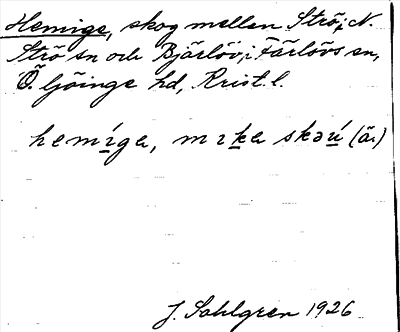 Hemige, skog mellan Strö, i N.
Strö sn och Bjärlöv, i Färlövs sn,
Ö. Göinge hd, Krist. l.
hemíga,
J. Sahlgren 1926